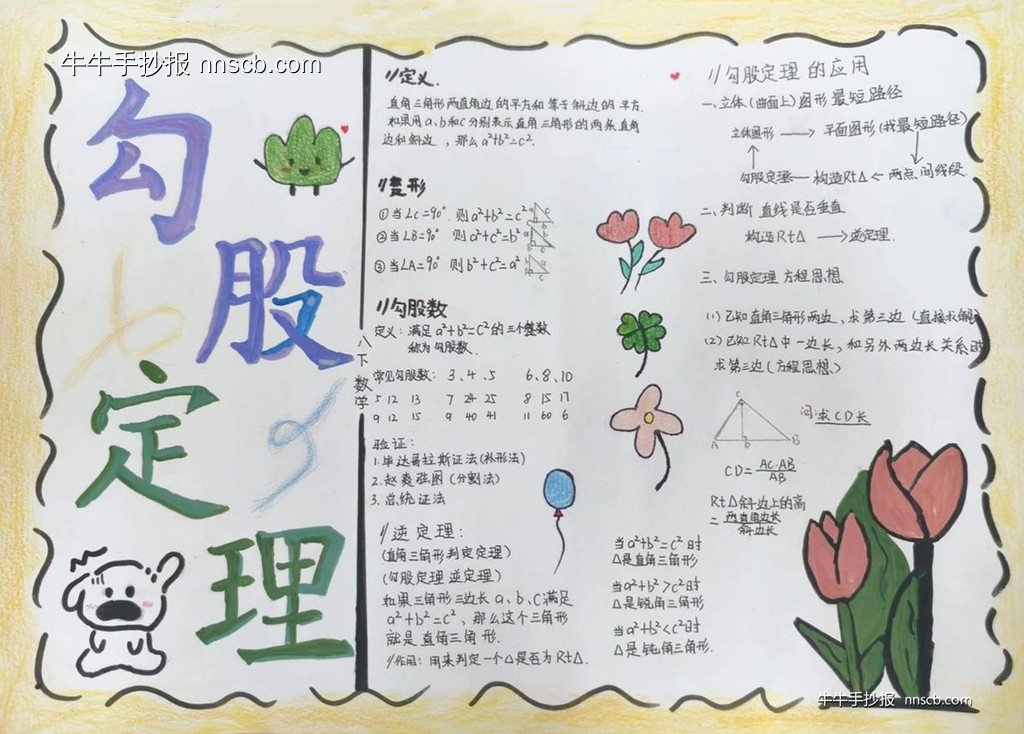 牛牛手抄报 nnscb.com
勾
股
定
理
八下数学
//定义.
直角三角形两直角边的平方和等于斜边的平方.
如果用a、b和c分别表示直角三角形的两条直角
边和斜边，那么a²+b²=c².
//变形
①当∠C=90°.则a²+b²=c²
②当∠B=90° 则a²+c²=b²
③当∠A=90° 则b²+c²=a²
//勾股数
定义：满足a²+b²=c²的三个整数
称为勾股数.
常见勾股数：3、4、5 6、8、10
5 12 13 7 24 25 8 15 17
9 12 15 9 40 41 11 60 6
验证：
1.毕达哥拉斯证法(补形法)
2.赵爽弦图(分割法)
3.总统证法
//逆定理：
(直角三角形判定定理)
(勾股定理逆定理)
如果三角形三边长a、b、c满足
a²+b²=c²，那么这个三角形
就是直角三角形.
//作用：用来判定一个△是否为Rt△.
//勾股定理的应用
一、立体(曲面上)图形最短路径
立体图形 → 平面图形(找最短路径)
勾股定理 ← 构造Rt△ ← 两点间线段.
二、判断直线是否垂直
构造Rt△ → 逆定理.
三、勾股定理方程思想
(1)已知直角三角形两边，求第三边(直接求解)
(2)已知Rt△中一边长，和另外两边长关系时
求第三边(方程思想)
C
A D B
问：求CD长
CD=AC·AB/AB
Rt△斜边上的高
=两直角边长/斜边长
当a²+b²=c²时
△是直角三角形
当a²+b²>c²时
△是锐角三角形
当a²+b²<c²时
△是钝角三角形.
牛牛手抄报 nnscb.com